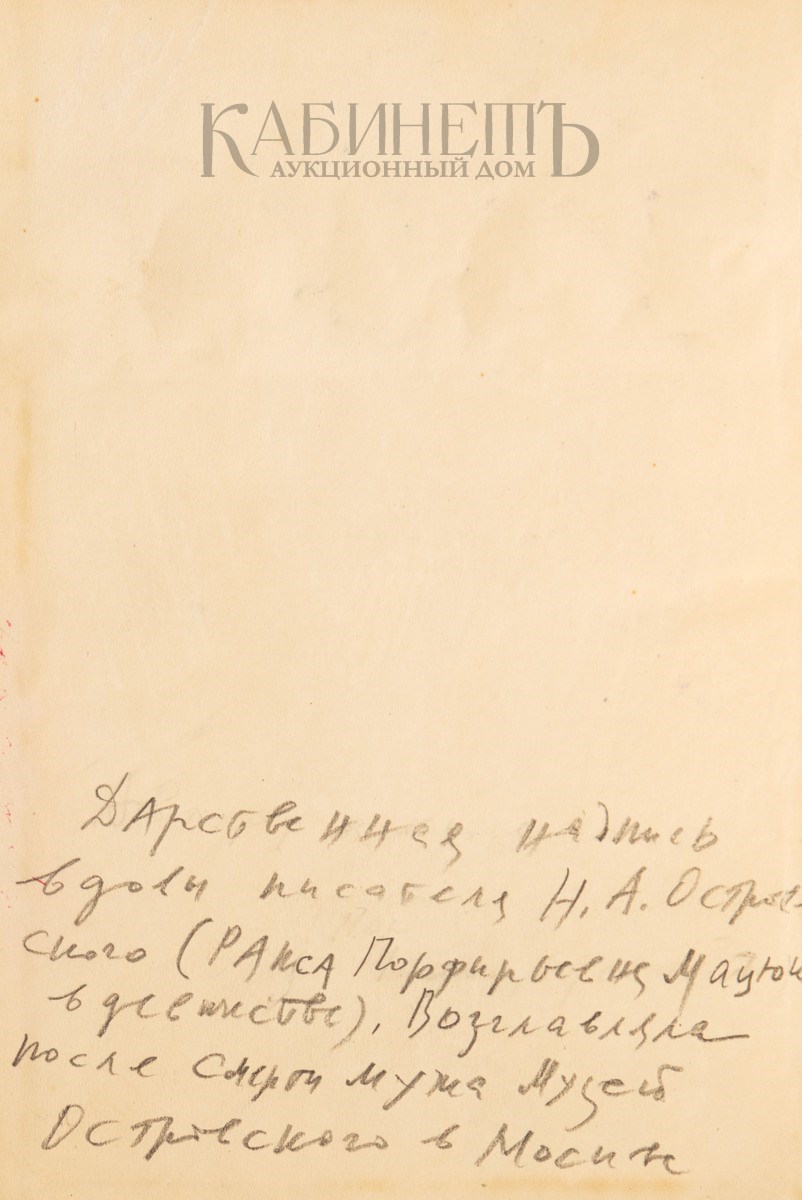 КАБИНЕТЪ
АУКЦИОННЫЙ ДОМ
Дарственная надпись
вдовы писателя Н. А. Остров-
ского (Раиса Порфирьевна Мацюк
в девичестве), Возглавляла
после смерти мужа Музей
Островского в Москве